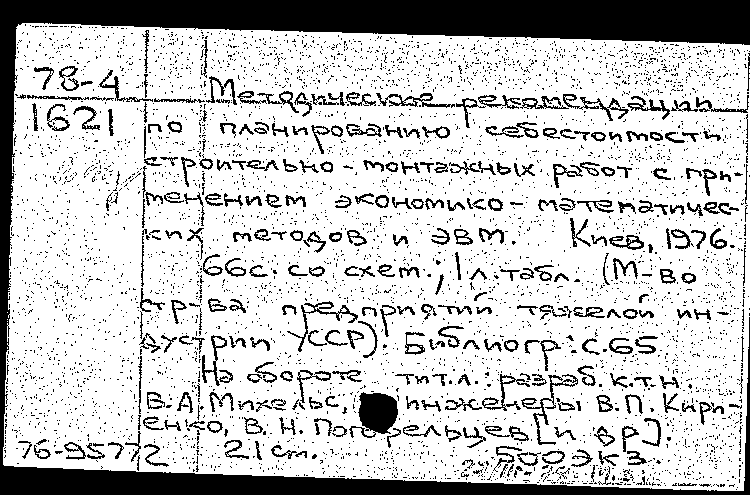 78-4
1621
Методические рекомендации
по планированию себестоимости
строительно-монтажных работ с при-
менением экономико-математичес-
ких методов и ЭВМ. Киев, 1976.
66с. со схем.; 1 л. табл. (М-во
стр-ва предприятий тяжелой ин-
дустрии УССР). Библиогр: с. 65
На обороте тит. л.: разраб. к.т.н.
В.А. Михельс, инженеры В.П. Кири-
енко, В.Н. Погорельцев [и др].
76-95772 21 см. 500экз.